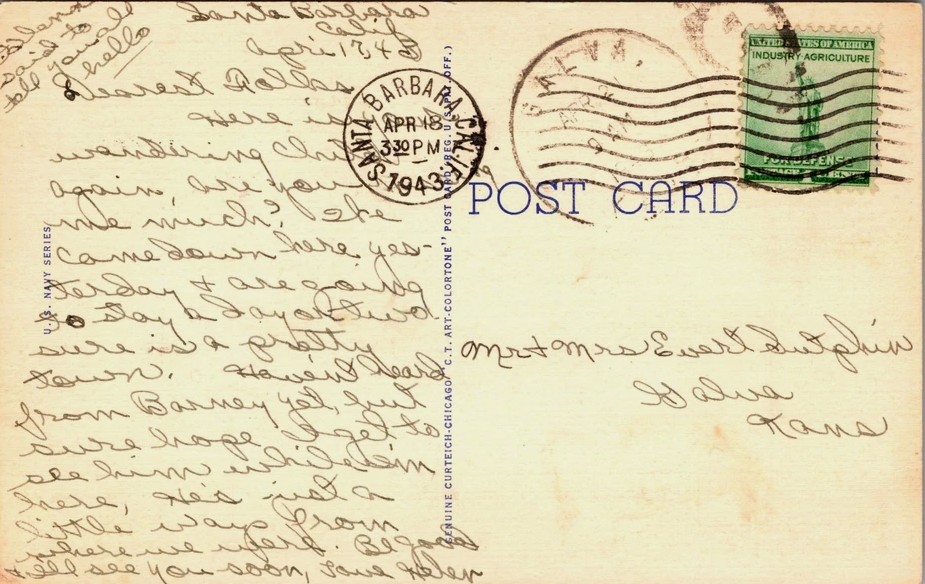 Glenn
said to
tell you all
hello
Santa Barbara
Calif
Apri 17, 43
Dearest Folks
Here is your
wandering child
again are you
me much? Ike
came down here yes-
terday & are going
to stay a day or two
sure is a pretty
town. Haven't heard
from Barney yet, but
sure hope I get to
see him while I'm
here, He's just a
little ways from
where we were. Be good
& I'll see you soon, Love Helen
U. S. NAVY SERIES
GENUINE CURTEICH-CHICAGO "C.T. ART-COLORTONE" POST CARD (REG. U. S. PAT. OFF.)
SANTA BARBARA, CALIF.
APR 18
3 30 PM
1943
GALVA,
APR
9 AM
UNITED STATES OF AMERICA
INDUSTRY·AGRICULTURE
FOR DEFENSE
POST CARD
Mr & Mrs Evert Sutphin
Galva
Kans